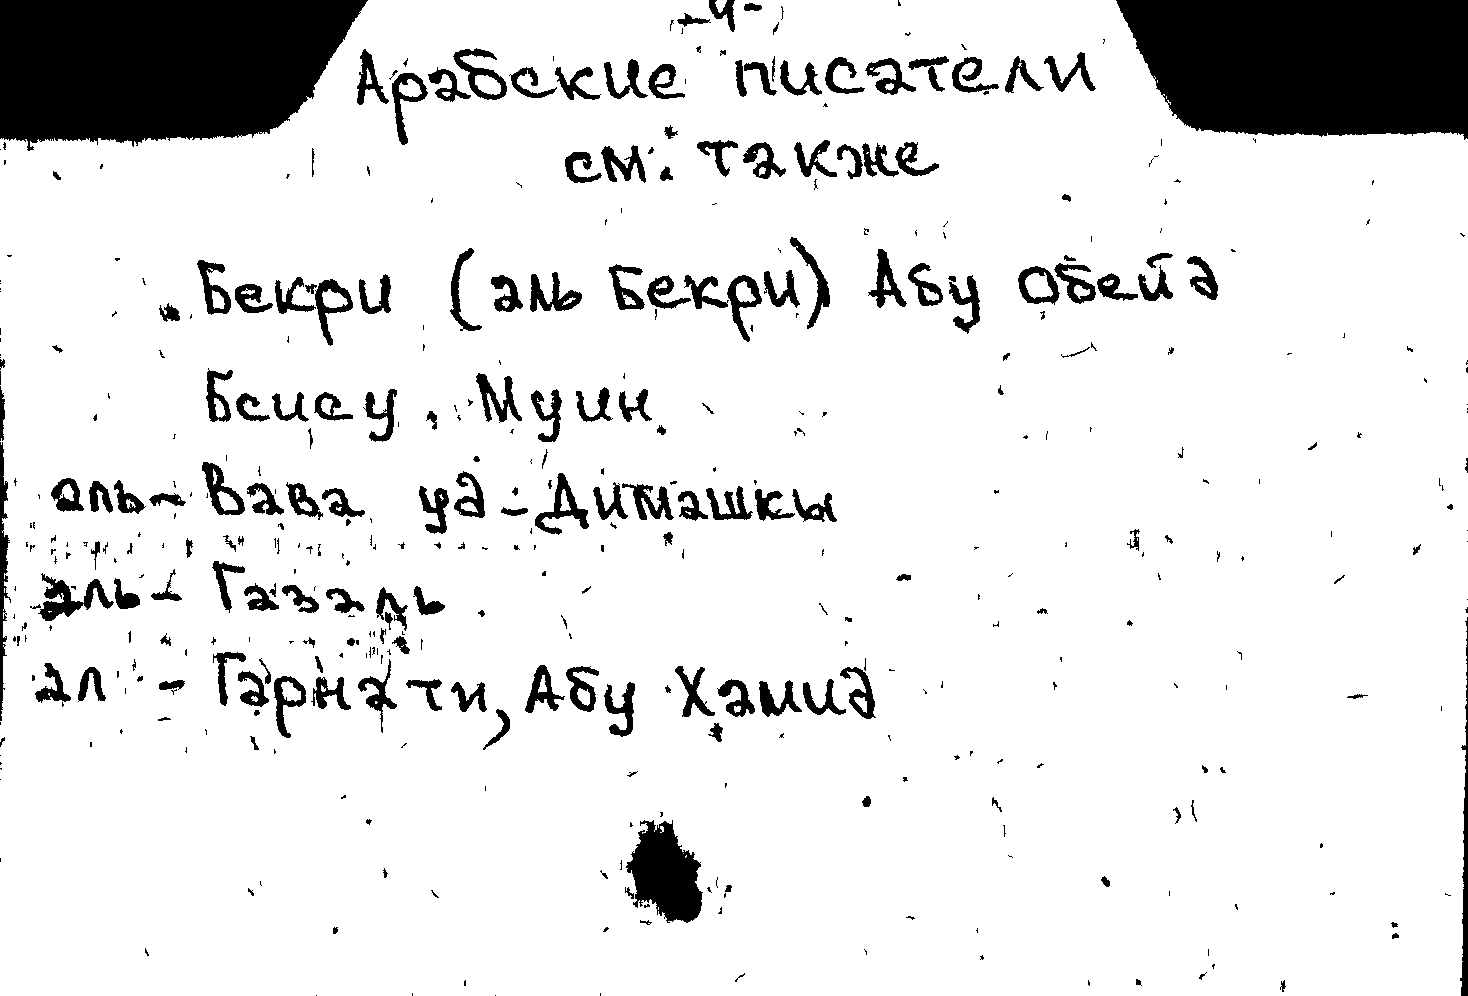 -4-
Арабские писатели
см. также
Бекри (аль Бекри) Абу Обейд
Бсису, Муин
аль-Вава уд-Димашкы
аль-Газаль
ал-Гарнати, Абу Хамид